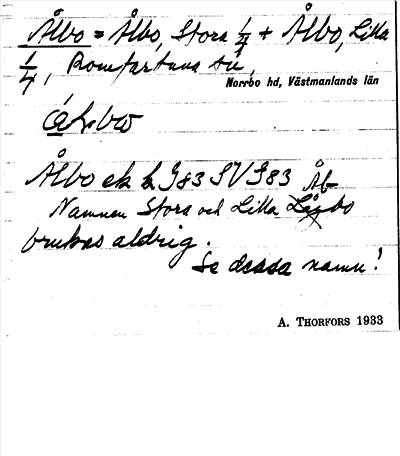 Ålbo = Ålbo, Stora 1/4 + Ålbo, Lilla
1/4, Romfartuna sn,
Norrbo hd, Västmanlands län
Ålbo ek h J983 SV J983 Åb
Namnen Stora och Lilla Ålbo
brukas aldrig.
Se dessa namn!
A. THORFORS 1933